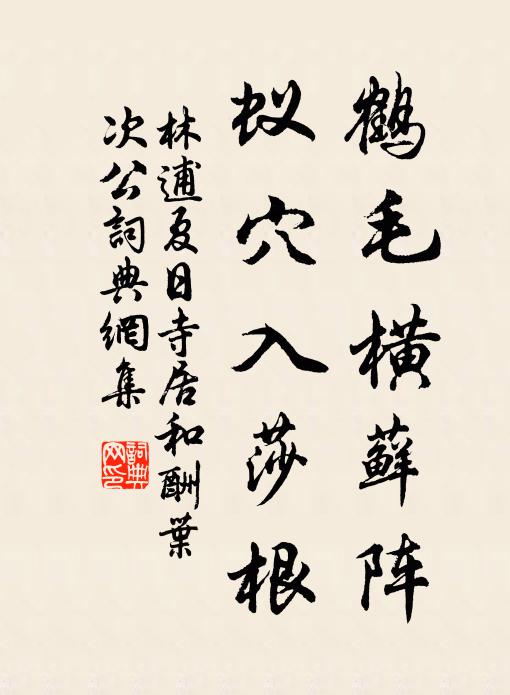 鹤毛横藓阵
蚁穴入莎根
林逋夏日寺居和酬葉
次公詞典網集
詞典
网印